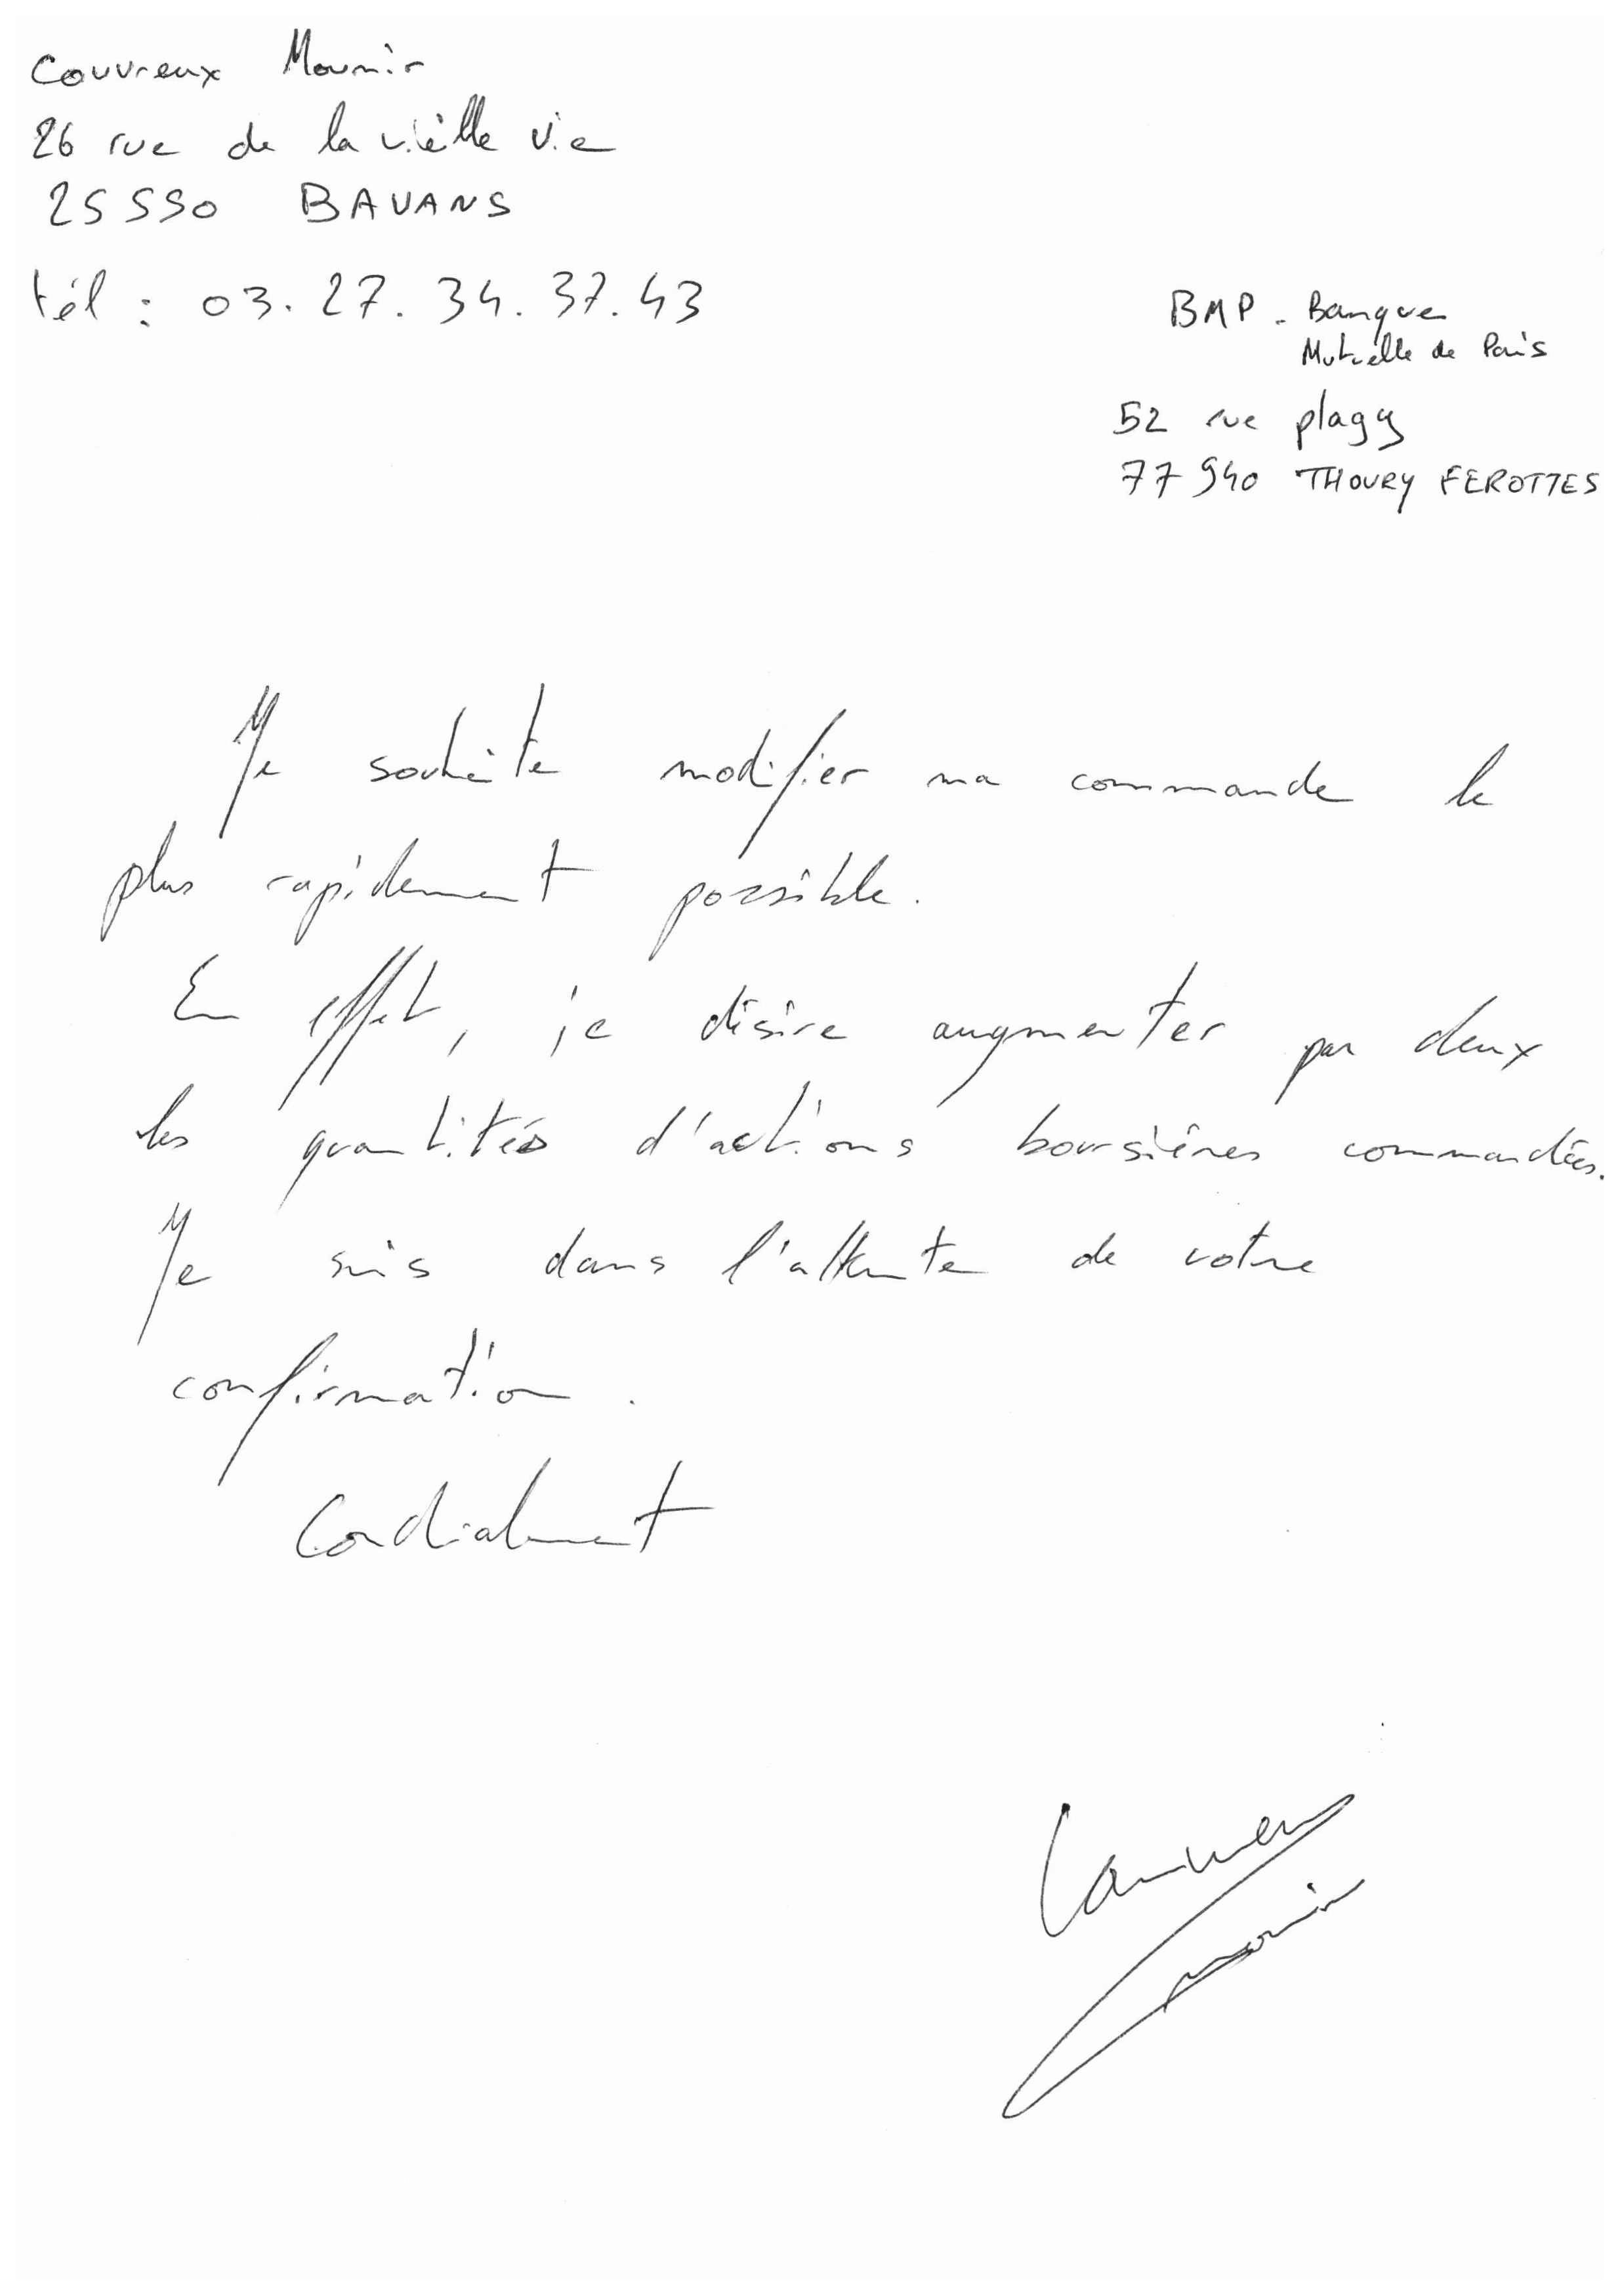 Couvreux Mounir
26 rue de la vièlle vie
25550 BAVANS
tél : 03.27.34.37.43
BMP - Banque
Mutuelle de Paris
52 rue plagy
77940 THOURY FEROTTES
Je souhète modifier ma commande le
plus rapidement possible.
En effet, je désire augmenter par deux
les quantités d'actions boursières commandées.
Je suis dans l'attente de votre
confirmation.
Cordialement
Couvreux
Mounir